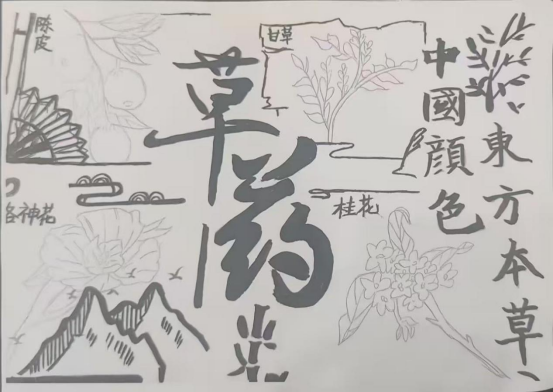 陈皮
甘草
草药
中國顔色
東方本草
洛神花
桂花